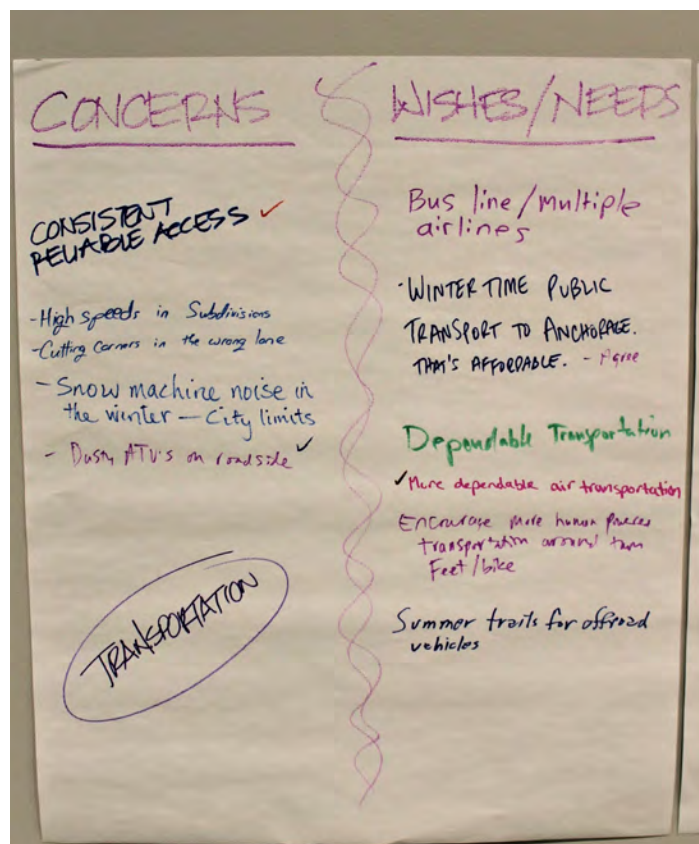 CONCERNS
CONSISTENT
RELIABLE ACCESS ✓
-High speeds in Subdivisions
-Cutting corners in the wrong lane
- Snow machine noise in
the winter — City limits
- Dusty ATV's on roadside ✓
TRANSPORTATION
WISHES/NEEDS
Bus line/multiple
airlines
·WINTER TIME PUBLIC
TRANSPORT TO ANCHORAGE.
THAT'S AFFORDABLE. - Agree
Dependable Transportation
✓More dependable air transportation
Encourage more human
transportation around town
Feet/bike
Summer trails for offroad
vehicles